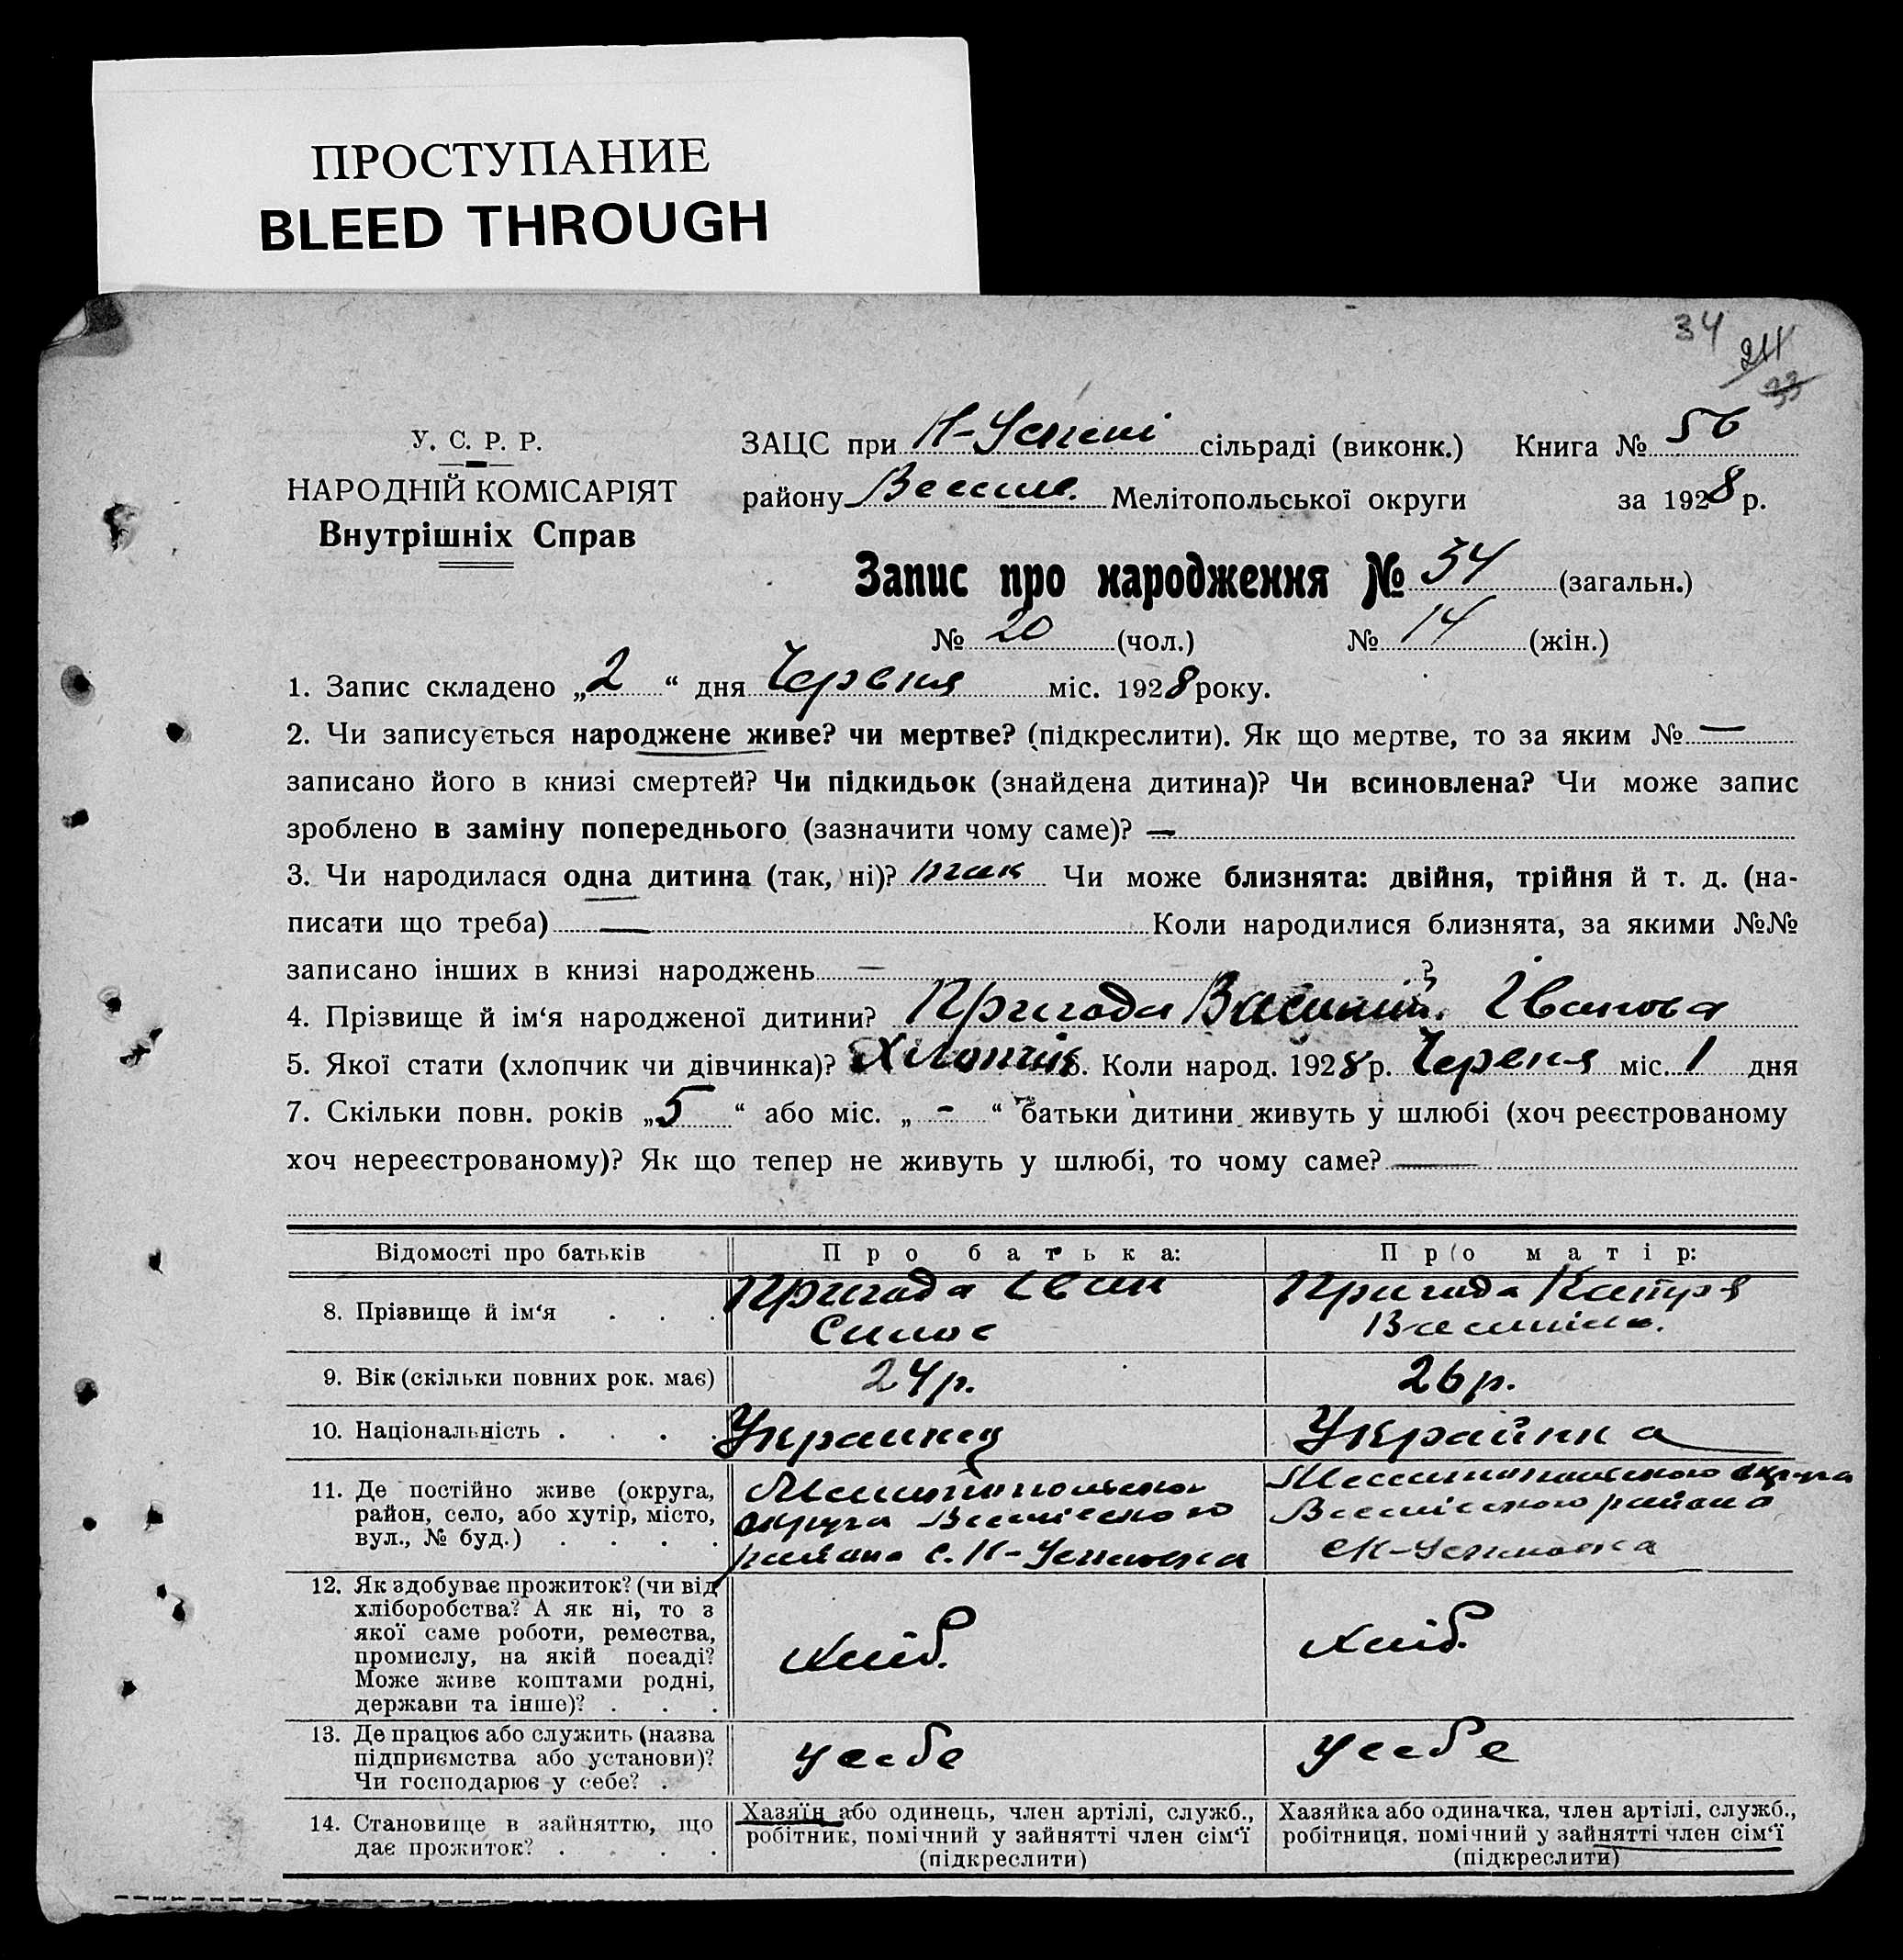 ПРОСТУПАНИЕ
BLEED THROUGH
34
24
33
У. С. Р. Р.
НАРОДНІЙ КОМІСАРІЯТ
Внутрішніх Справ
ЗАЦС при Н-Успені сільраді (виконк.) Книга № 56
району Весели. Мелітопольської округи за 1928 р.
Запис про народження № 34 (загальн.)
№ 20 (чол.) № 14 (жін.)
1. Запис складено „2“ дня Червня міс. 1928 року.
2. Чи записується народжене живе? чи мертве? (підкреслити). Як що мертве, то за яким № —
записано його в книзі смертей? Чи підкидьок (знайдена дитина)? Чи всиновлена? Чи може запис
зроблено в заміну попереднього (зазначити чому саме)? —
3. Чи народилася одна дитина (так, ні)? так Чи може близнята: двійня, трійня й т. д. (на-
писати що треба) — Коли народилися близнята, за якими №№
записано інших в книзі народжень — ?
4. Прізвище й ім‘я народженої дитини? Пригода Василий Іванова
5. Якої стати (хлопчик чи дівчинка)? Хлопчик 6. Коли народ. 1928 р. Череня міс. 1 дня
7. Скільки повн. років „5“ або міс. „-“ батьки дитини живуть у шлюбі (хоч реєстрованому
хоч нереєстрованому)? Як що тепер не живуть у шлюбі, то чому саме? —
Відомості про батьків Про батька: Про матір:
8. Прізвище й ім‘я . . . Пригода Іван Пригода Катуря
Симос Василів.
9. Вік (скільки повних рок. має) 24 р. 26 р.
10. Національність . . . . Украинец Украйнка
11. Де постійно живе (округа,
район, село, або хутір, місто,
вул., № буд.) . . . .
округа
района с. Н-Успеновка
округа
района
с Н-Успеновка
12. Як здобуває прожиток? (чи від
хліборобства? А як ні, то з
якої саме роботи, ремества,
промислу, на якій посаді?
Може живе коштами родні,
держави та інше)? . . .
хліб. хліб.
13. Де працює або служить (назва
підприємства або установи)?
Чи господарює у себе? .
у себе у себе
14. Становище в зайняттю, що
дає прожиток? . . . .
Хазяїн або одинець, член артілі, служб.,
робітник, помічний у зайнятті член сім‘ї
(підкреслити)
Хазяйка або одиначка, член артілі, служб.,
робітниця, помічний у зайнятті член сім‘ї
(підкреслити)